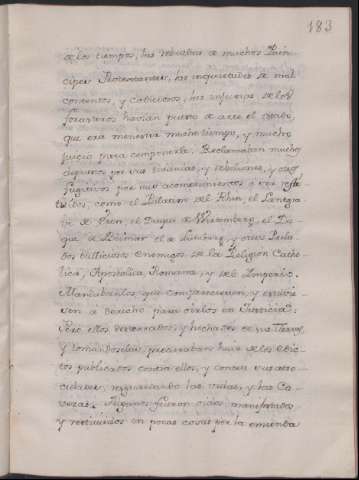 183
de los tiempos, las rebueltas de muchos Prin-
cipes Protestantes, las inquietudes de mal
contentos, y cabiciosos, las injurias de los
forasteros havian puesto de arte el estado,
que era menester mucho tiempo, y mucho
juicio para componerle. Reclamaban muchos
algunos por sus tiranias, y rebeliones, y otros
fugitivos por sus acometimientos a ser resti-
tuidos, como el Palatino del Rhin, el Lansgra-
be de Esen, el Duque de Wirtemberg, el Du-
que de Beimar el de Luneburg, y otros Prela-
dos bulliciosos enemigos de la Religion Catho-
lica, Apostolica, Romana, y del Imperio.
Mandabanlos que compareciesen, y estuvie-
sen a derecho para oirlos en Justicia.
Pero ellos desterrados, y hechados de sus Tierras,
y tomandoselas procuraban huir de los Edic-
tos publicados contra ellos, y contra sus atro-
cidades, resguardando las vidas, y las Ca-
vezas. Algunos fueron oidos, manifestados
y restituidos en pocas cosas por la enmienda